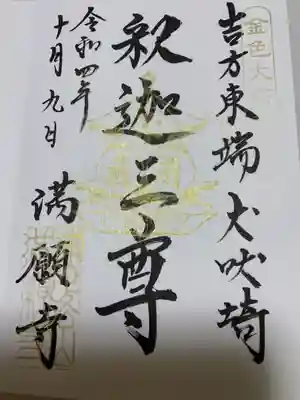 吉方東端犬吠埼
釈迦三尊
令和四年
十月九日
満願寺